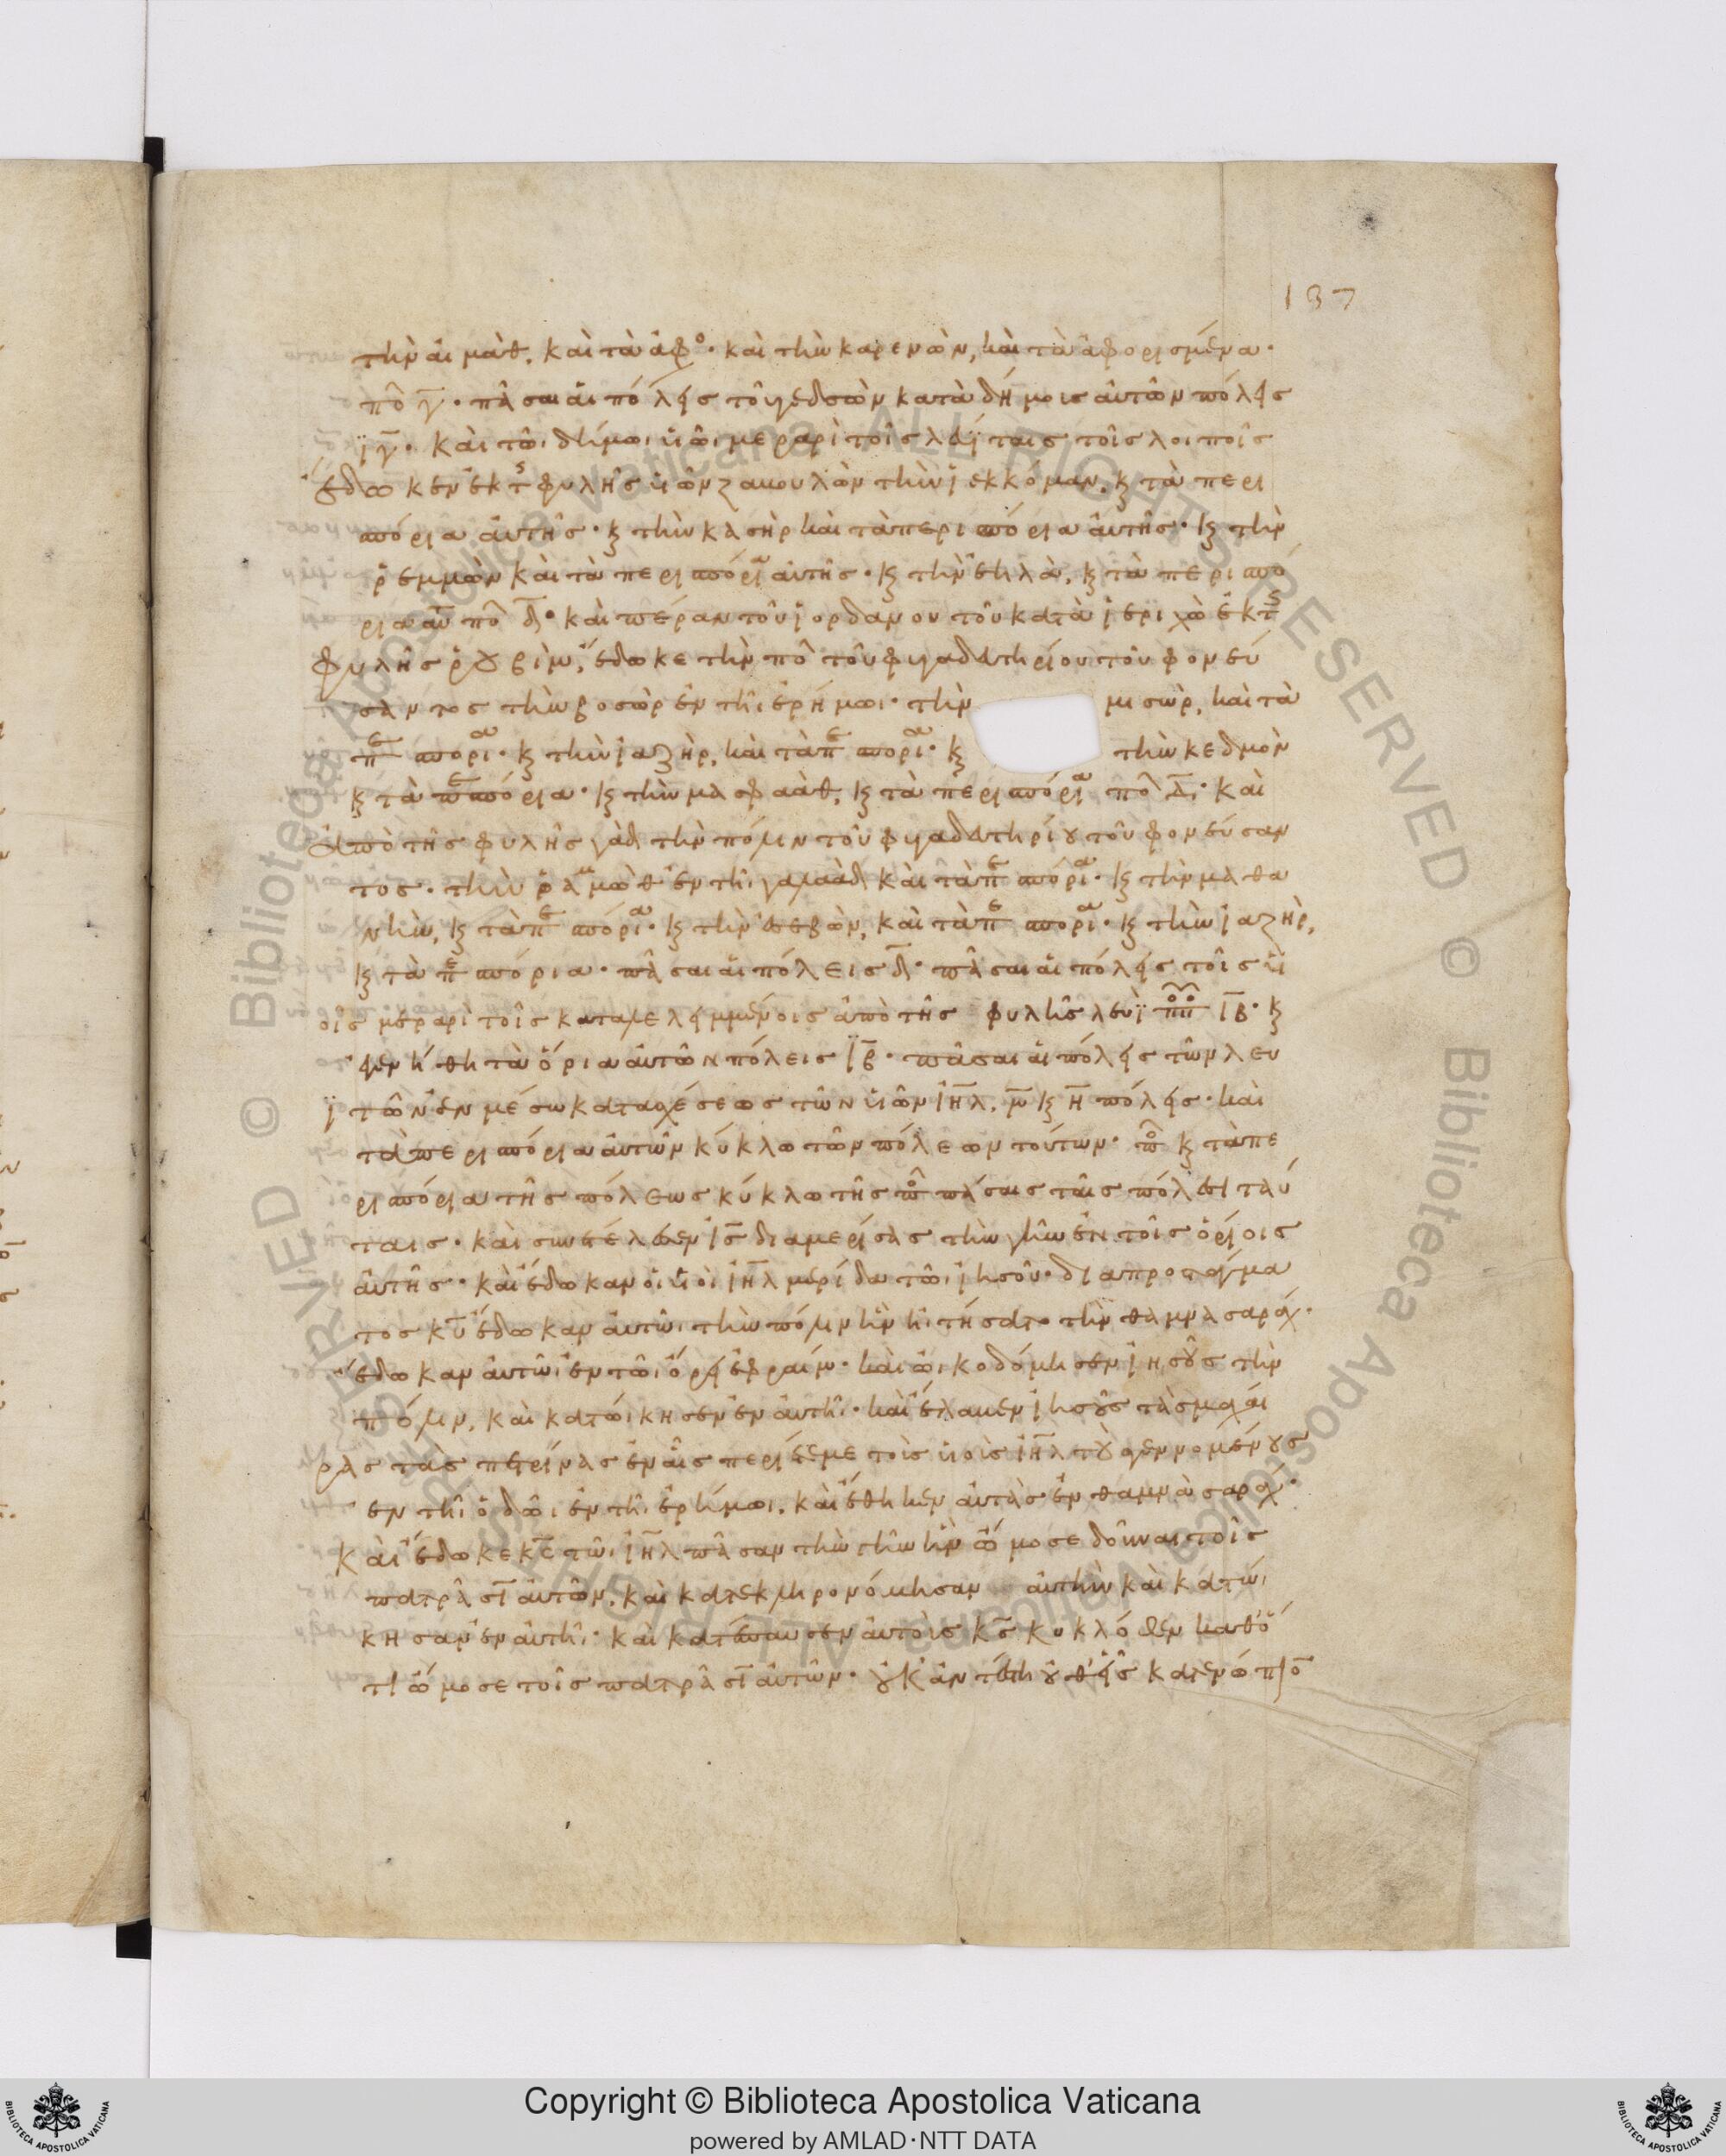 137
τὴν αἱμὰθ, καὶ τὰ ἀφο· καὶ τὴν καρενὼν, καὶ τὰ ἀφορισμένα·
πο γ· πᾶσαι αἱ πόλεις τοῦ γεδσὼν κατὰ δήμοις αὐτῶν πόλεις
ιγ· καὶ τῶι δήμωι υἱῶι μεραρὶ τοῖς λευΐταις τοῖς λοιποῖς
ἔδωκεν ἐκ τς φυλῆς υἱῶν ζαβουλὼν τὴν ἱεκκόμαν, κ τὰ περι
σπόρια αὐτῆς· κ τὴν κασὴρ καὶ τὰ περισπόρια αὐτῆς· κ τὴν
ῥεμμὼν καὶ τὰ περισπόρια αὐτῆς· κ τὴν ἑηλὰ, κ τὰ περισπό
ρια αυ πο δ· καὶ πέραν τοῦ ἰορδάνου τοῦ κατὰ ἱεριχὼ ἐκ τς
φυλῆς ῥουβὶμ, ἔδωκε τὴν πο τοῦ φυγαδευτηρίου τοῦ φονεύ
σαντος τὴν βοσὼρ ἐν τῆι ἐρήμωι· τὴν μισὼρ, καὶ τὰ
πε σπορια· κ τὴν ἰαζὴρ, καὶ τὰ πε σπορια· κ τὴν κεδμὸν
κ τὰ πε σπόρια· κ τὴν μασφαὰθ, κ τὰ περισπόρια πο δ· καὶ
ἀπὸ τῆς φυλῆς γὰδ τὴν πόλιν τοῦ φυγαδευτηρίου τοῦ φονεύσαν
τος· τὴν ῥαμὼθ ἐν τῆι γαλαὰδ καὶ τὰ πε σπόρια· κ τὴν μαθα
νὴν, κ τὰ πε σπόρια· κ τὴν ἐσεβὼν, καὶ τὰ πε σπορια· κ τὴν ἰαζὴρ,
κ τὰ πε σπόρια· πᾶσαι αἱ πόλεις δ· πᾶσαι αἱ πόλεις τοῖς υἱ
οῖς μεραρὶ τοῖς καταλελημμένοις ἀπὸ τῆς φυλῆς λευῒ ΙΒ· κ
ἐγενήθη τὰ ὅρια αὐτῶν πόλεις ιβ· πᾶσαι αἱ πόλεις τῶν λευ
ϊτῶν ἐν μέσω κατασχέσεως τῶν υἱῶν ιηλ, μ κ η πόλεις· καὶ
τὰ περισπόρια αὐτῶν κύκλω τῶν πόλεων τούτων· πο κ τὰ πε
ρισπόρια τῆς πόλεως κύκλω τῆς πο πάσαις ταῖς πόλεσι ταύ
ταις· καὶ συνετέλεσεν ις διαμερίσας τὴν γῆν ἐν τοῖς ὁρίοις
αὐτῆς· καὶ ἔδωκαν οἱ υἱοὶ ιηλ μερίδα τῶι ἰησοῦ· διὰ προσταγμα
τος κυ ἔδωκαν αὐτῶι τὴν πόλιν ἣν ἠιτήσατο τὴν θαμνασαράχ·
ἔδωκαν αὐτῶι ἐν τῶι ὄρει ἐφραίμ· καὶ ὠικοδόμησεν ἰησοῦς τὴν
πόλιν, καὶ κατώικησεν ἐν αὐτῆι· καὶ ἔλαβεν ἰησοῦς τὰς μαχαί
ρας τὰς πετρίνας ἐν αἷς περιέτεμε τοὺς υἱοὺς ιηλ τοὺ γενομένους
ἐν τῆι ὁδῶι ἐν τῆι ἐρήμωι, καὶ ἔθηκεν αὐτὰς ἐν θαμνὰ σαραχ·
Καὶ ἔδωκε κς τῶι ιηλ πᾶσαν τὴν γῆν ἣν ὤμοσε δοῦναι τοῖς
πατράσι αὐτῶν, καὶ κατεκληρονόμησαν αὐτὴν καὶ κατώι
κησαν ἐν αὐτῆι· καὶ κατέπαυσεν αὐτοὺς κς κυκλόθεν καθό
τι ὤμοσε τοῖς πατράσι αὐτῶν· οὐκ ἀντέστη οὐθεὶς κατενώπιο
Copyright © Biblioteca Apostolica Vaticana
powered by AMLAD·NTT DATA